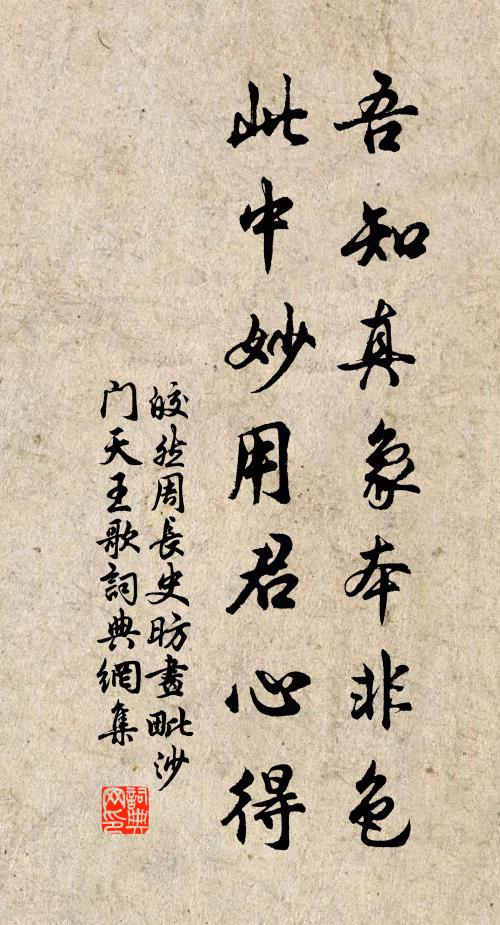 吾知真象本非色
此中妙用君心得
皎然周長史昉畫毗沙
门天王歌詞典網集
詞典
网印